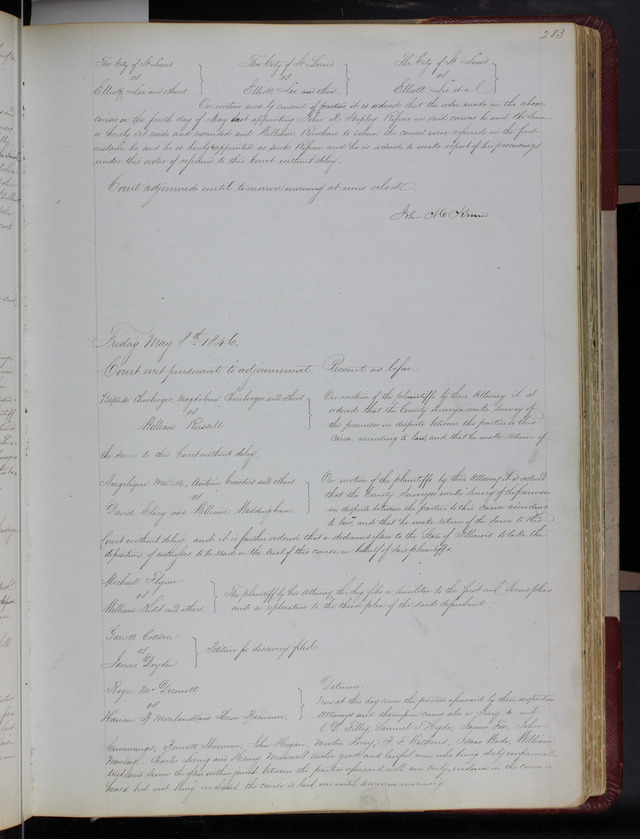 283
The City of St Louis The City of St Louis The City of St Louis
vs vs vs
Elliott Lee and others Elliott Lee an others Elliott Lee et al
On motion and by consent of parties it is ordered that the order made in the above
causes on the fourth day of May appointing John M. Referee in said causes be and the same
is hereby set aside and rescinded and William to whom the causes were referred in the first
instance be and he is hereby appointed as such Referee and he is ordered to make report of his proceedings
under this order of reference to this Court without delay.
Court adjourned until tomorrow morning at nine o'clock.
John M Krum
Friday May 8th 1846
Court met pursuant to adjournment. Present as before.
Baptiste Magdalena and others On motion of the plaintiffs by their Attorney it is
vs ordered that the County Surveyor make survey of
William Russell the premises in dispute between the parties to this
cause, according to law, and that he make return of
the same to this Court without delay.
Angelique and others On motion of the plaintiffs by their Attorney it is ordered
vs that the County Surveyor make survey of the premises
David Clary and William Waddingham in dispute between the parties to this cause according
to law and that he make return of the same to this
Court without delay and it is further ordered that a dedimus issue to the State of Illinois to take the
deposition of witnesses to be read on the trial of this cause on behalf of said plaintiffs.
Michael Flynn
vs The plaintiff by his Attorney this day files a similiter to the first and second pleas
William Kidd and others and a replication to the third plea of the said defendant.
Garrett
vs Petition for discovery filed.
James
Roger McDermott Detinue
vs Now at this day come the parties aforesaid by their respective
Warren and Attorneys and thereupon comes also a Jury to wit
O. D. Filley, Samuel T. Hyde, James Fox, John
Cummings, Barnett Sherman, John Hogan, Newton Perry, Watkins, Isaac Wade, William
Charles and Henry McDowell twelve good and lawful men who being duly empannelled
tried and sworn the issue within joined between the parties aforesaid well and truly evidence in the cause is
heard but not being concluded the cause is laid over until tomorrow morning